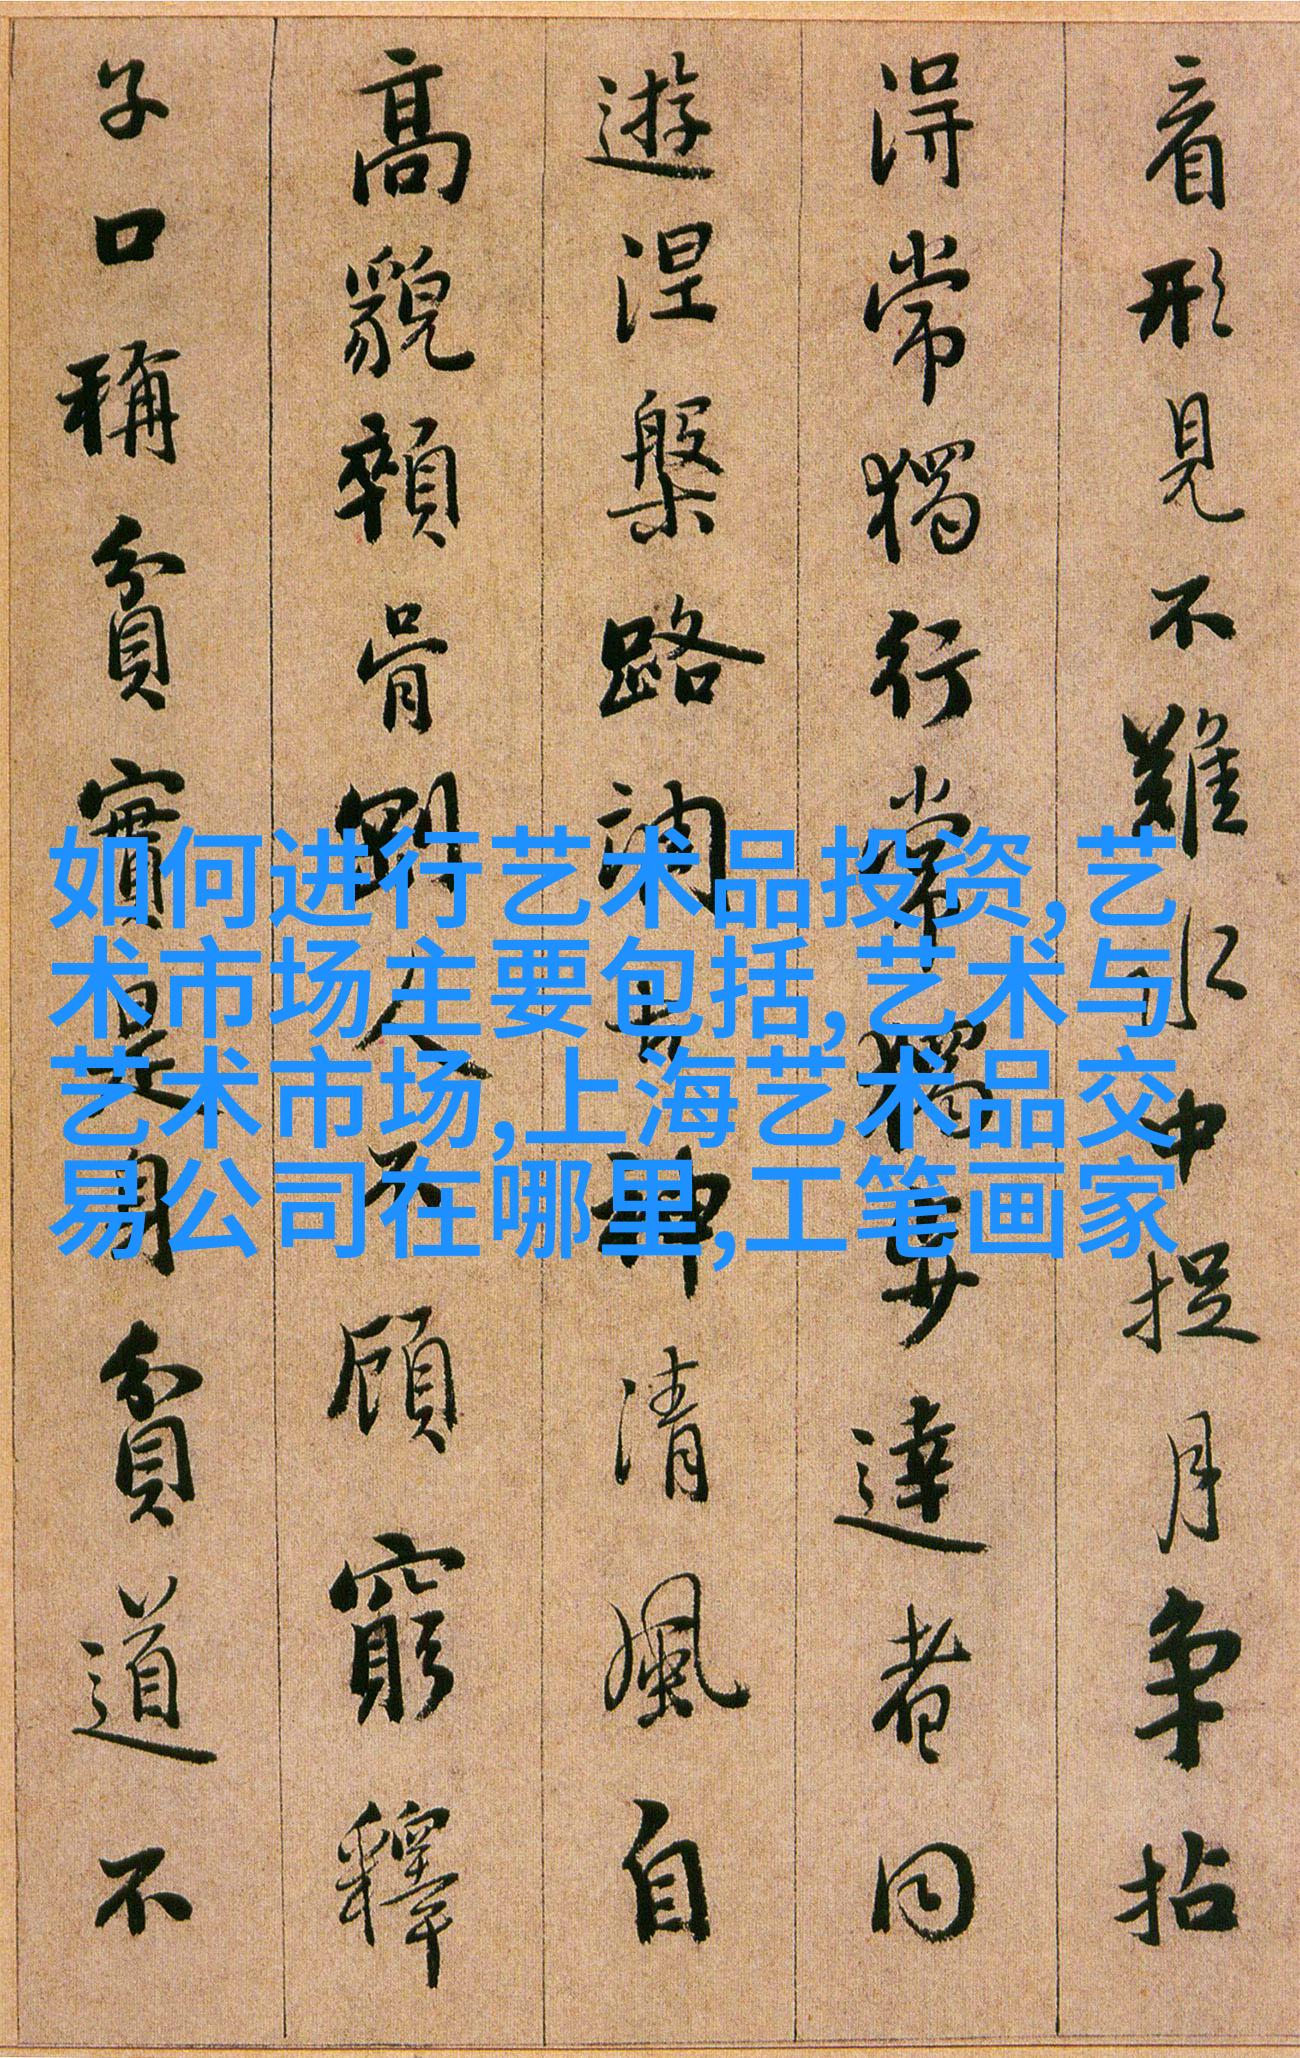 如何进行艺术品投资,艺
术市场主要包括,艺术与
艺术市场,上海艺术品交
易公司在哪里,工笔画家
看形見不難水中捉月争拈
得常獨行常獨步達者同
遊涅槃路調古神清風自
高貌顇骨剛人不顧窮釋
子口稱貧實是身貧道不